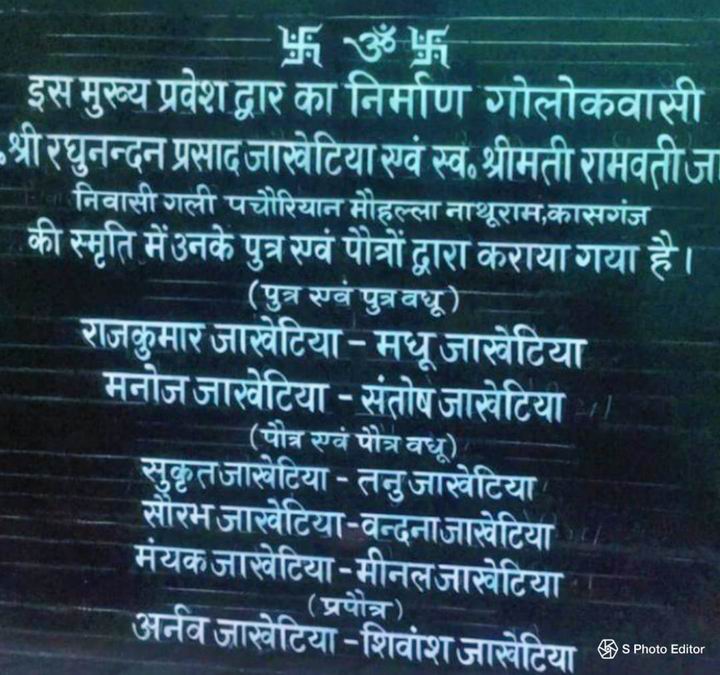 卐 ॐ 卐
इस मुख्य प्रवेश द्वार का निर्माण गोलोकवासी
श्री रघुनन्दन प्रसाद जाखेटिया एवं स्व॰ श्रीमती रामवती जा
निवासी गली पचौरियान मौहल्ला नाथूराम,कासगंज
की स्मृति में उनके पुत्र एवं पौत्रों द्वारा कराया गया है।
(पुत्र एवं पुत्र वधू)
राजकुमार जाखेटिया - मधू जाखेटिया
मनोज जाखेटिया - संतोष जाखेटिया
(पौत्र एवं पौत्र वधू)
सुकृत जाखेटिया - तनु जाखेटिया
सौरभ जाखेटिया - वन्दना जाखेटिया
मंयक जाखेटिया - मीनल जाखेटिया
(प्रपौत्र)
अर्नव जाखेटिया - शिवांश जाखेटिया
S Photo Editor